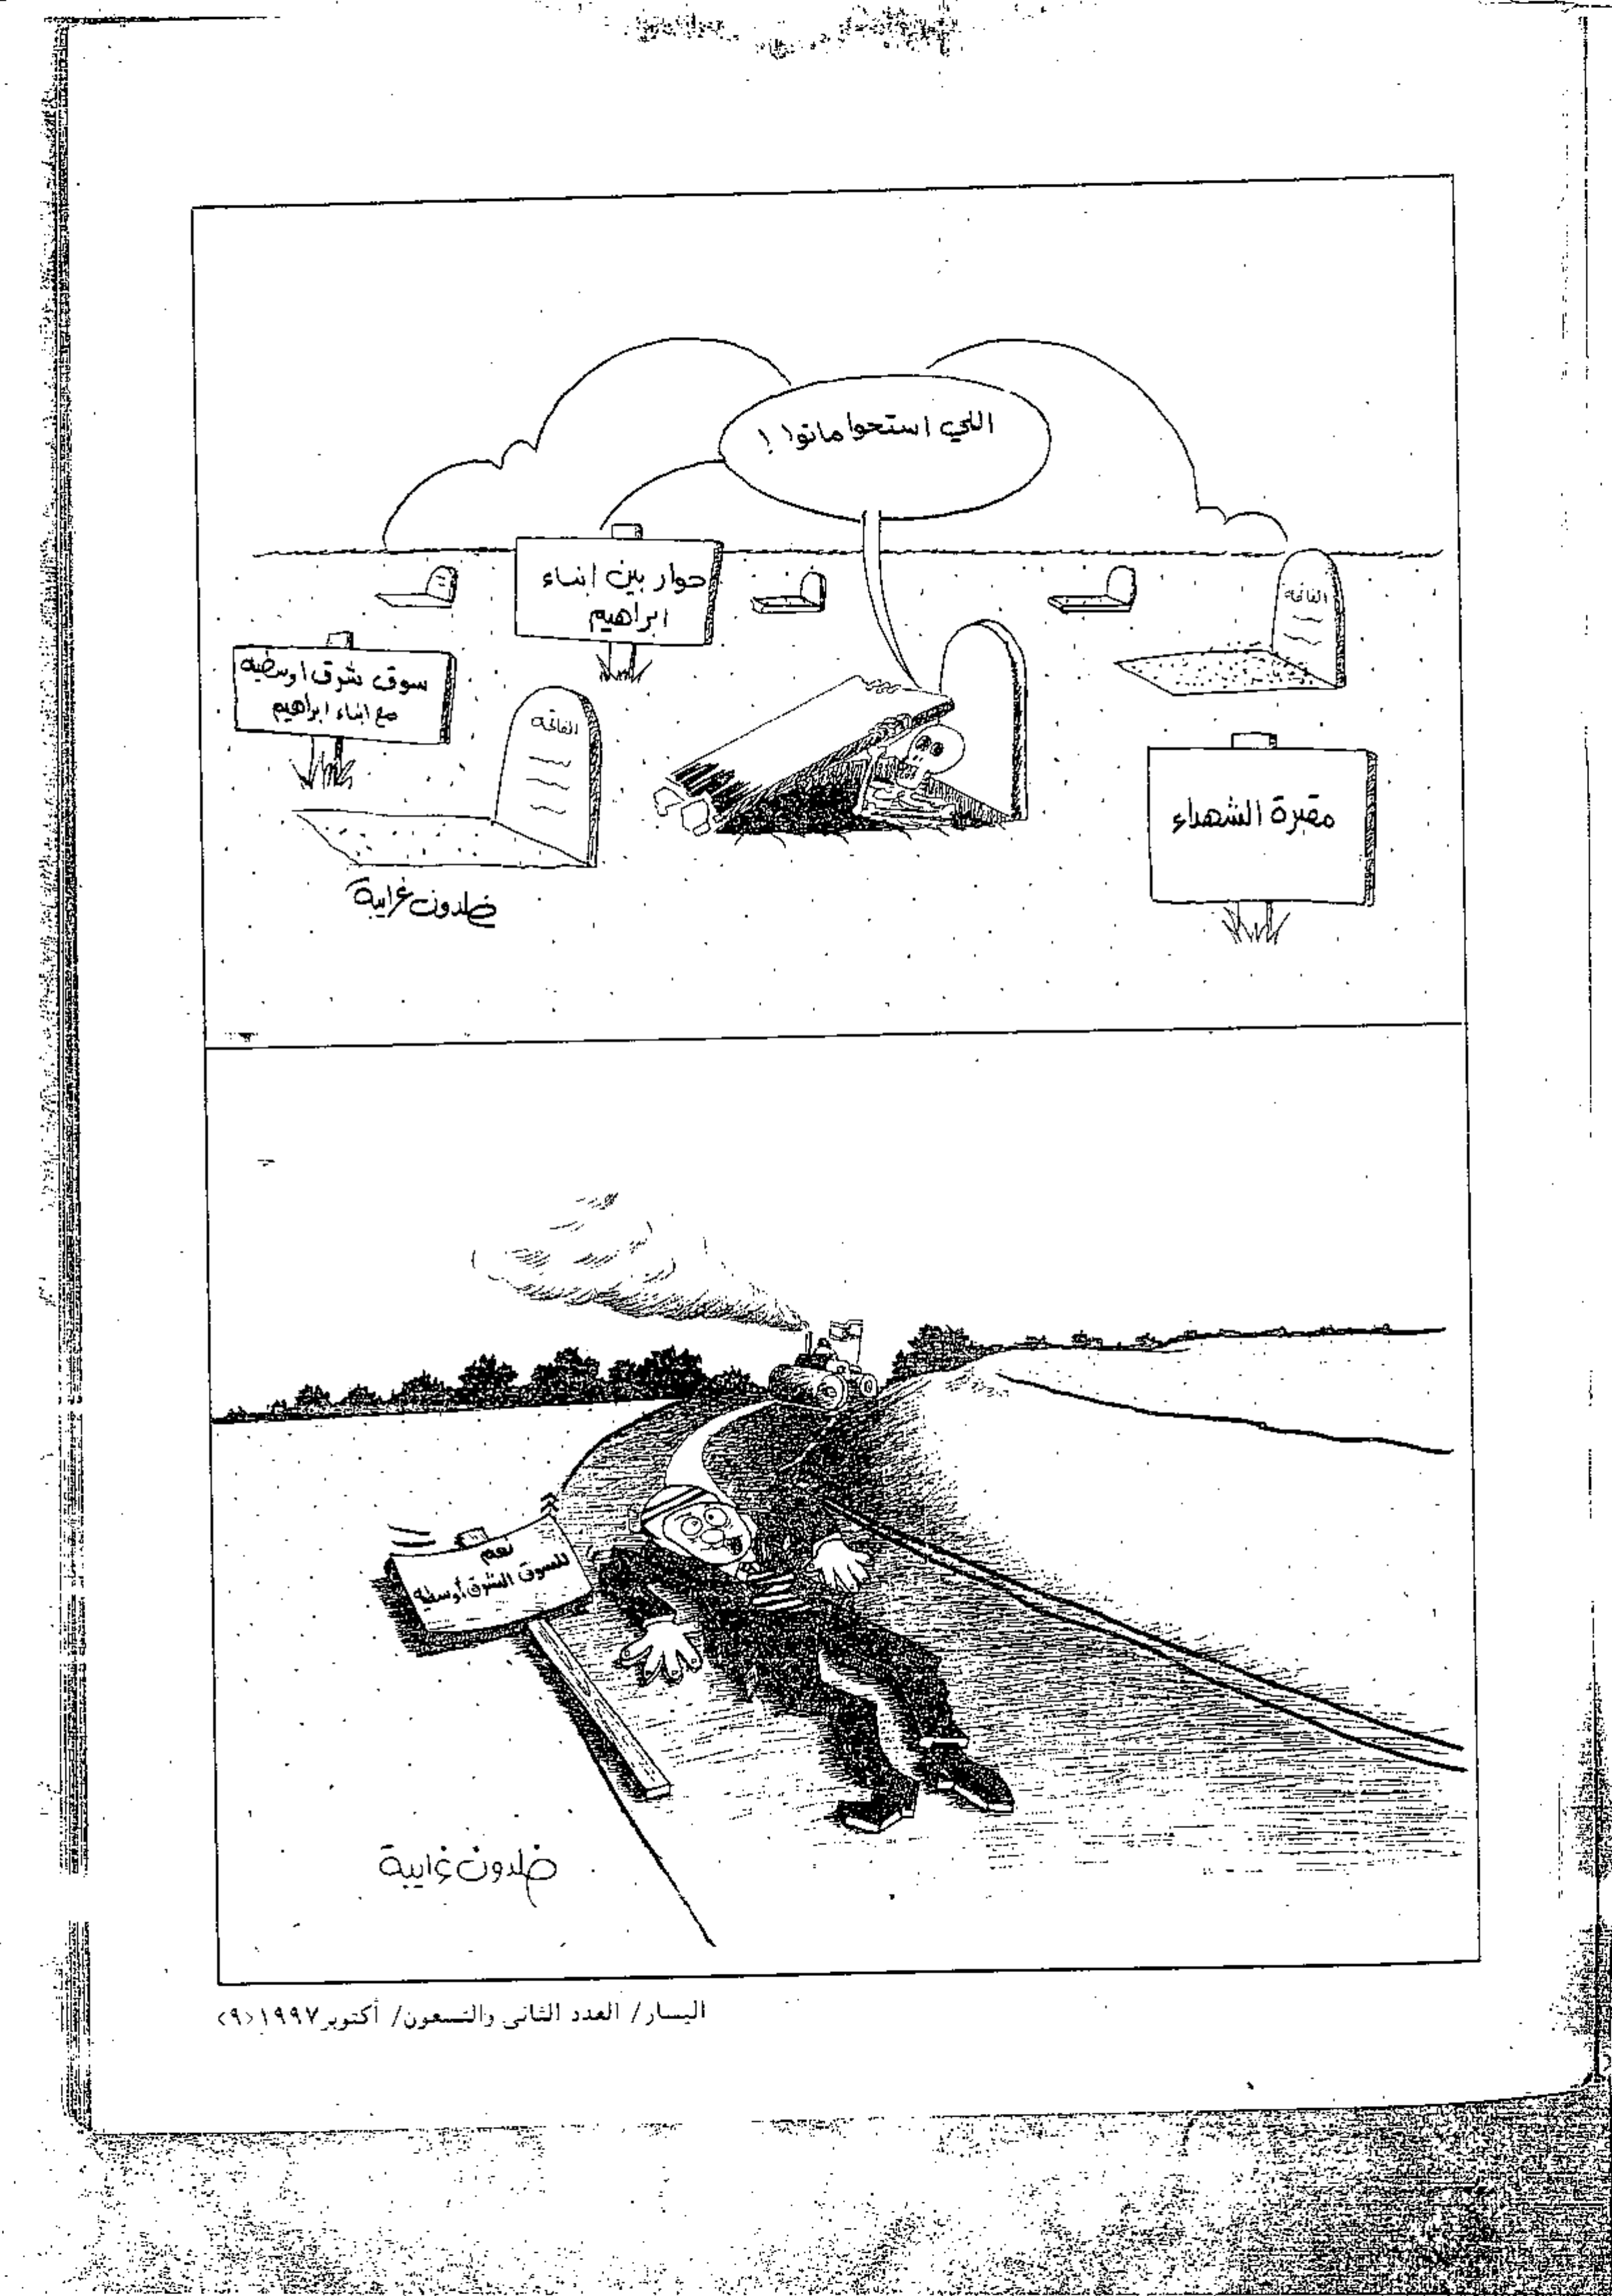 اللي استحوا ماتوا !
حوار بين ابناء
ابراهيم
سوق شرق اوسطيه
مع ابناء ابراهيم
الفاتحه
الفاتحه
مقبرة الشهداء
خلدون غرايبة
نعم
للسوق الشرق أوسطيه
خلدون غرايبة
اليسار/ العدد الثانى والتسعون/ أكتوبر ١٩٩٧<٩>